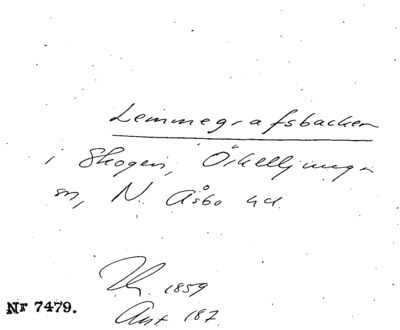 Lemmegrafsbacken
i Skogen, Örkelljunga
sn, N. Åsbo hd.
1859
Nr 7479.
Ant 187.